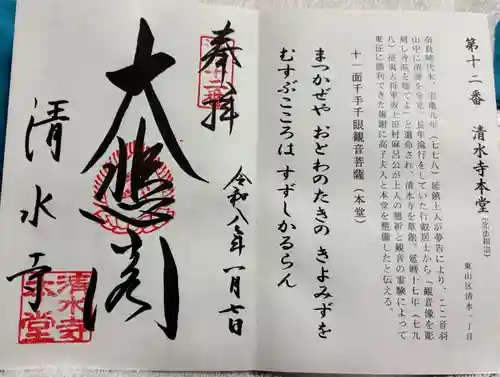 第十二番 清水寺本堂（北法相宗）
東山区清水一丁目
奈良時代末、宝亀九年（七七八）延鎮上人が夢告により、ここ音羽
山中に清瀧を発見、長年滝行をしていた行叡居士から「観音像を彫
刻し寺院を建てよ」と遺命され、清水寺を草創。延暦十七年（七九
八）征夷大将軍坂上田村麻呂公が上人の懇祈と観音の霊験によって
東征に勝利できた報謝に高子夫人と本堂を整備したと伝える。
十一面千手千眼観音菩薩（本堂）
まつかぜや おとわのたきの きよみずを
むすぶこころは すずしかるらん
奉拝
令和八年一月七日
大悲閣
清水寺
清水寺
本堂